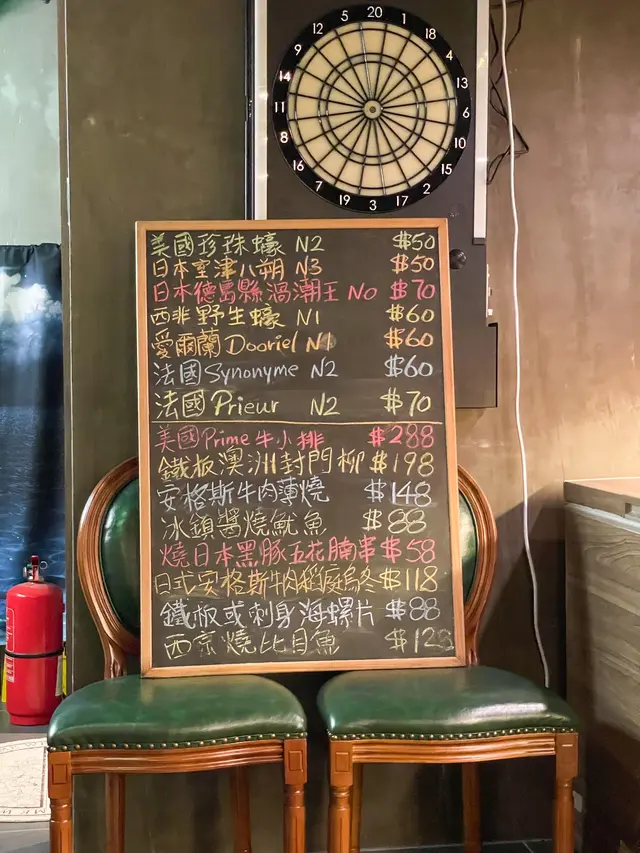 5 20 1
12 18
9 4
14 13
11 6
8 10
16 15
7 2
19 3 17
美國珍珠蠔 N2 $50
日本室津八朔 N3 $50
日本德島縣渦潮王 NO $70
西非野生蠔 N1 $60
愛爾蘭 Dooriel N1 $60
法國 Synonyme N2 $60
法國 Prieur N2 $70
美國Prime牛小排 $288
鐵板澳洲封門柳 $198
安格斯牛肉薄燒 $148
冰鎮醬燒魷魚 $88
燒日本黑豚五花腩串 $58
日式安格斯牛肉稻庭烏冬 $118
鐵板或刺身海螺片 $88
西京燒比目魚 $128